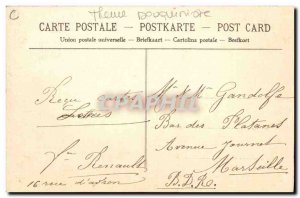 C
Theme bouquiniste
CARTE POSTALE - POSTKARTE - POST CARD
Union postale universelle - Briefkaart - Cartolina postale - Brefkort
Reçu cartes
Vve Renault
16 rue
Gandolfe
Bar des Platanes
Avenue Journet
Marseille
B.D.R.